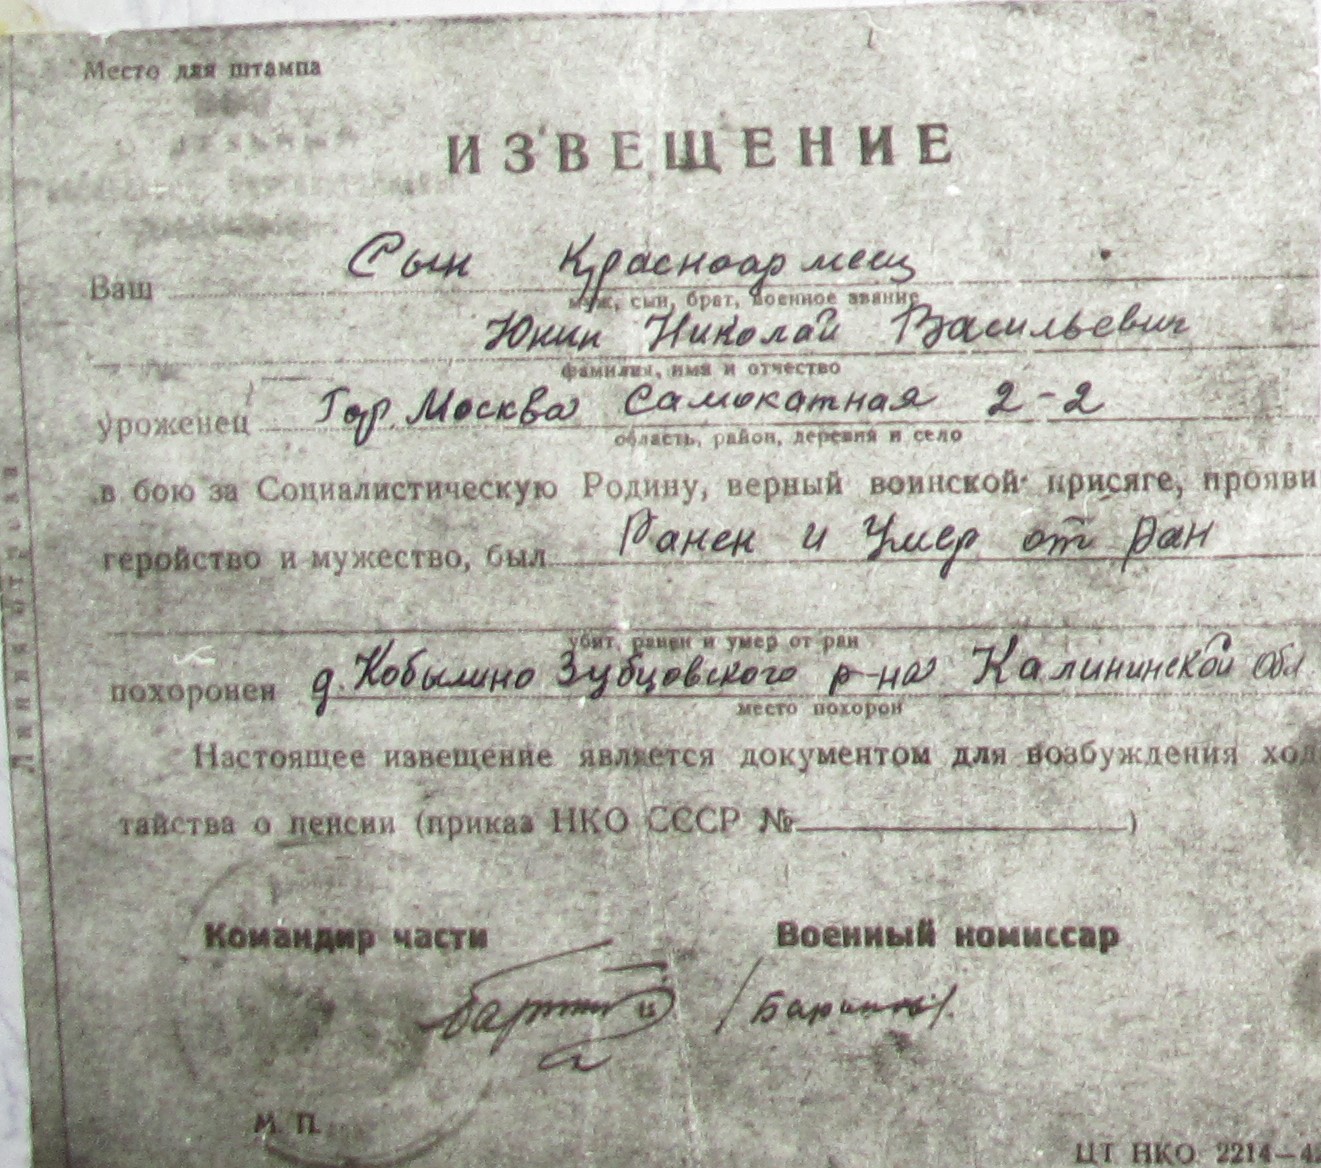 Место для штампа
ИЗВЕЩЕНИЕ
Ваш Сын Красноармеец
муж, сын, брат, военное звание
Юнин Николай Васильевич
фамилия, имя и отчество
уроженец Гор. Москва Самокатная 2-2
область, район, деревня и село
в бою за Социалистическую Родину, верный воинской присяге, прояви
геройство и мужество, был Ранен и Умер от ран
убит, ранен и умер от ран
похоронен д. Кобылино Зубцовского р-на Калининской Обл
место похорон
Настоящее извещение является документом для возбуждения ход
тайства о пенсии (приказ НКО СССР № )
Командир части Военный комиссар
М. П.
ЦТ НКО 2214—42
Линия отреза